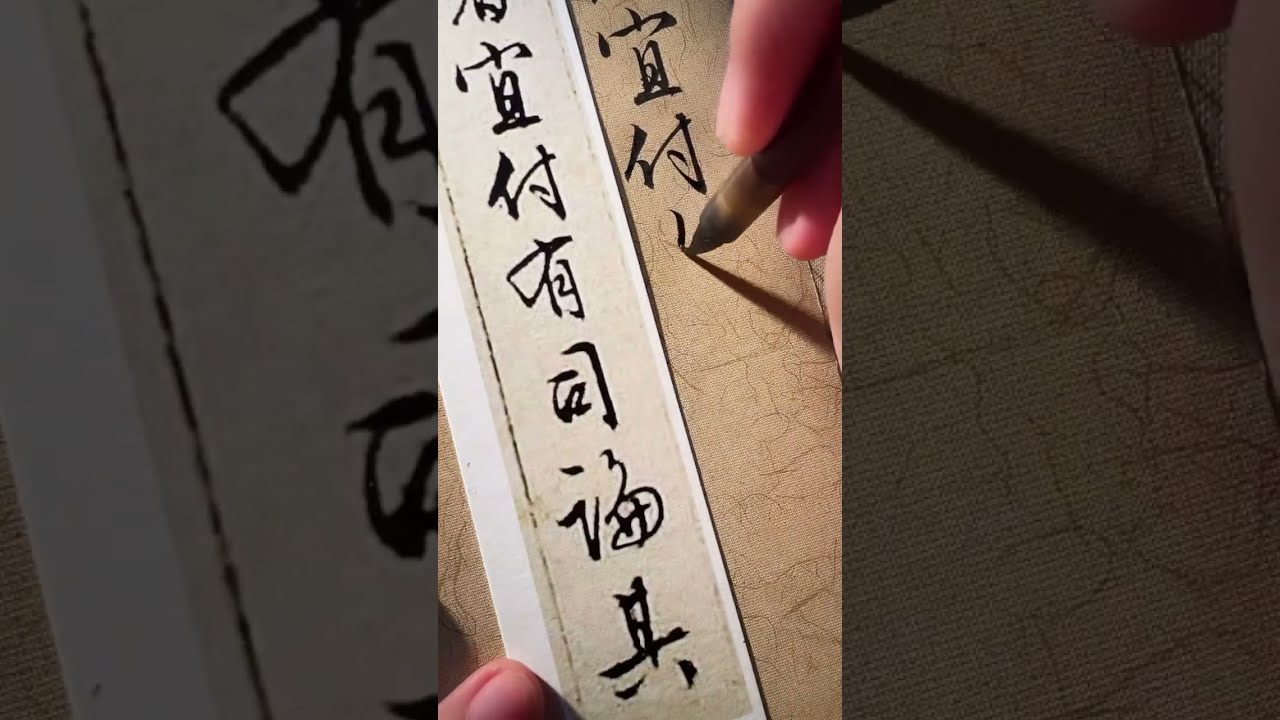 宜付有司論其
宜付